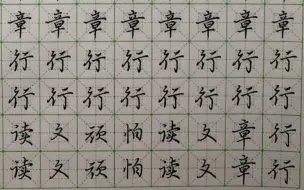 章章章章章章章章
行行行行行行行行
行行行行行行行行
读文顽怕读文章行
读文顽怕读文章行